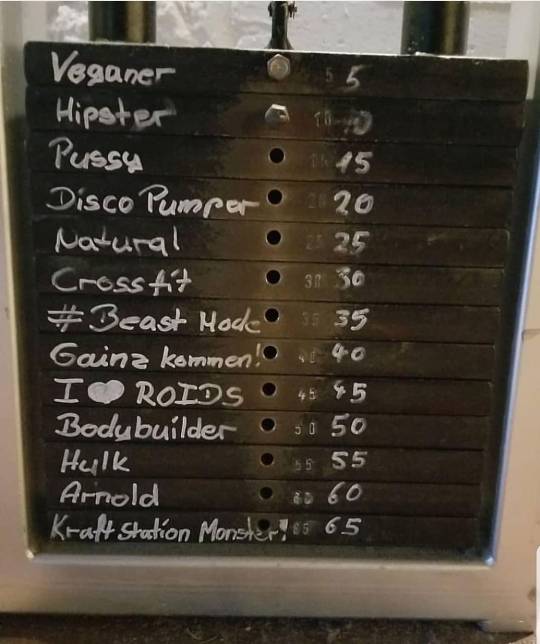 Veganer 5 5
Hipster 10 10
Pussy 15 15
Disco Pumper 20 20
Natural 25 25
Crossfit 30 30
# Beast Mode 35 35
Gainz kommen! 40 40
I ❤ ROIDS 45 45
Bodybuilder 50 50
Hulk 55 55
Arnold 60 60
Kraftstation Monster! 65 65